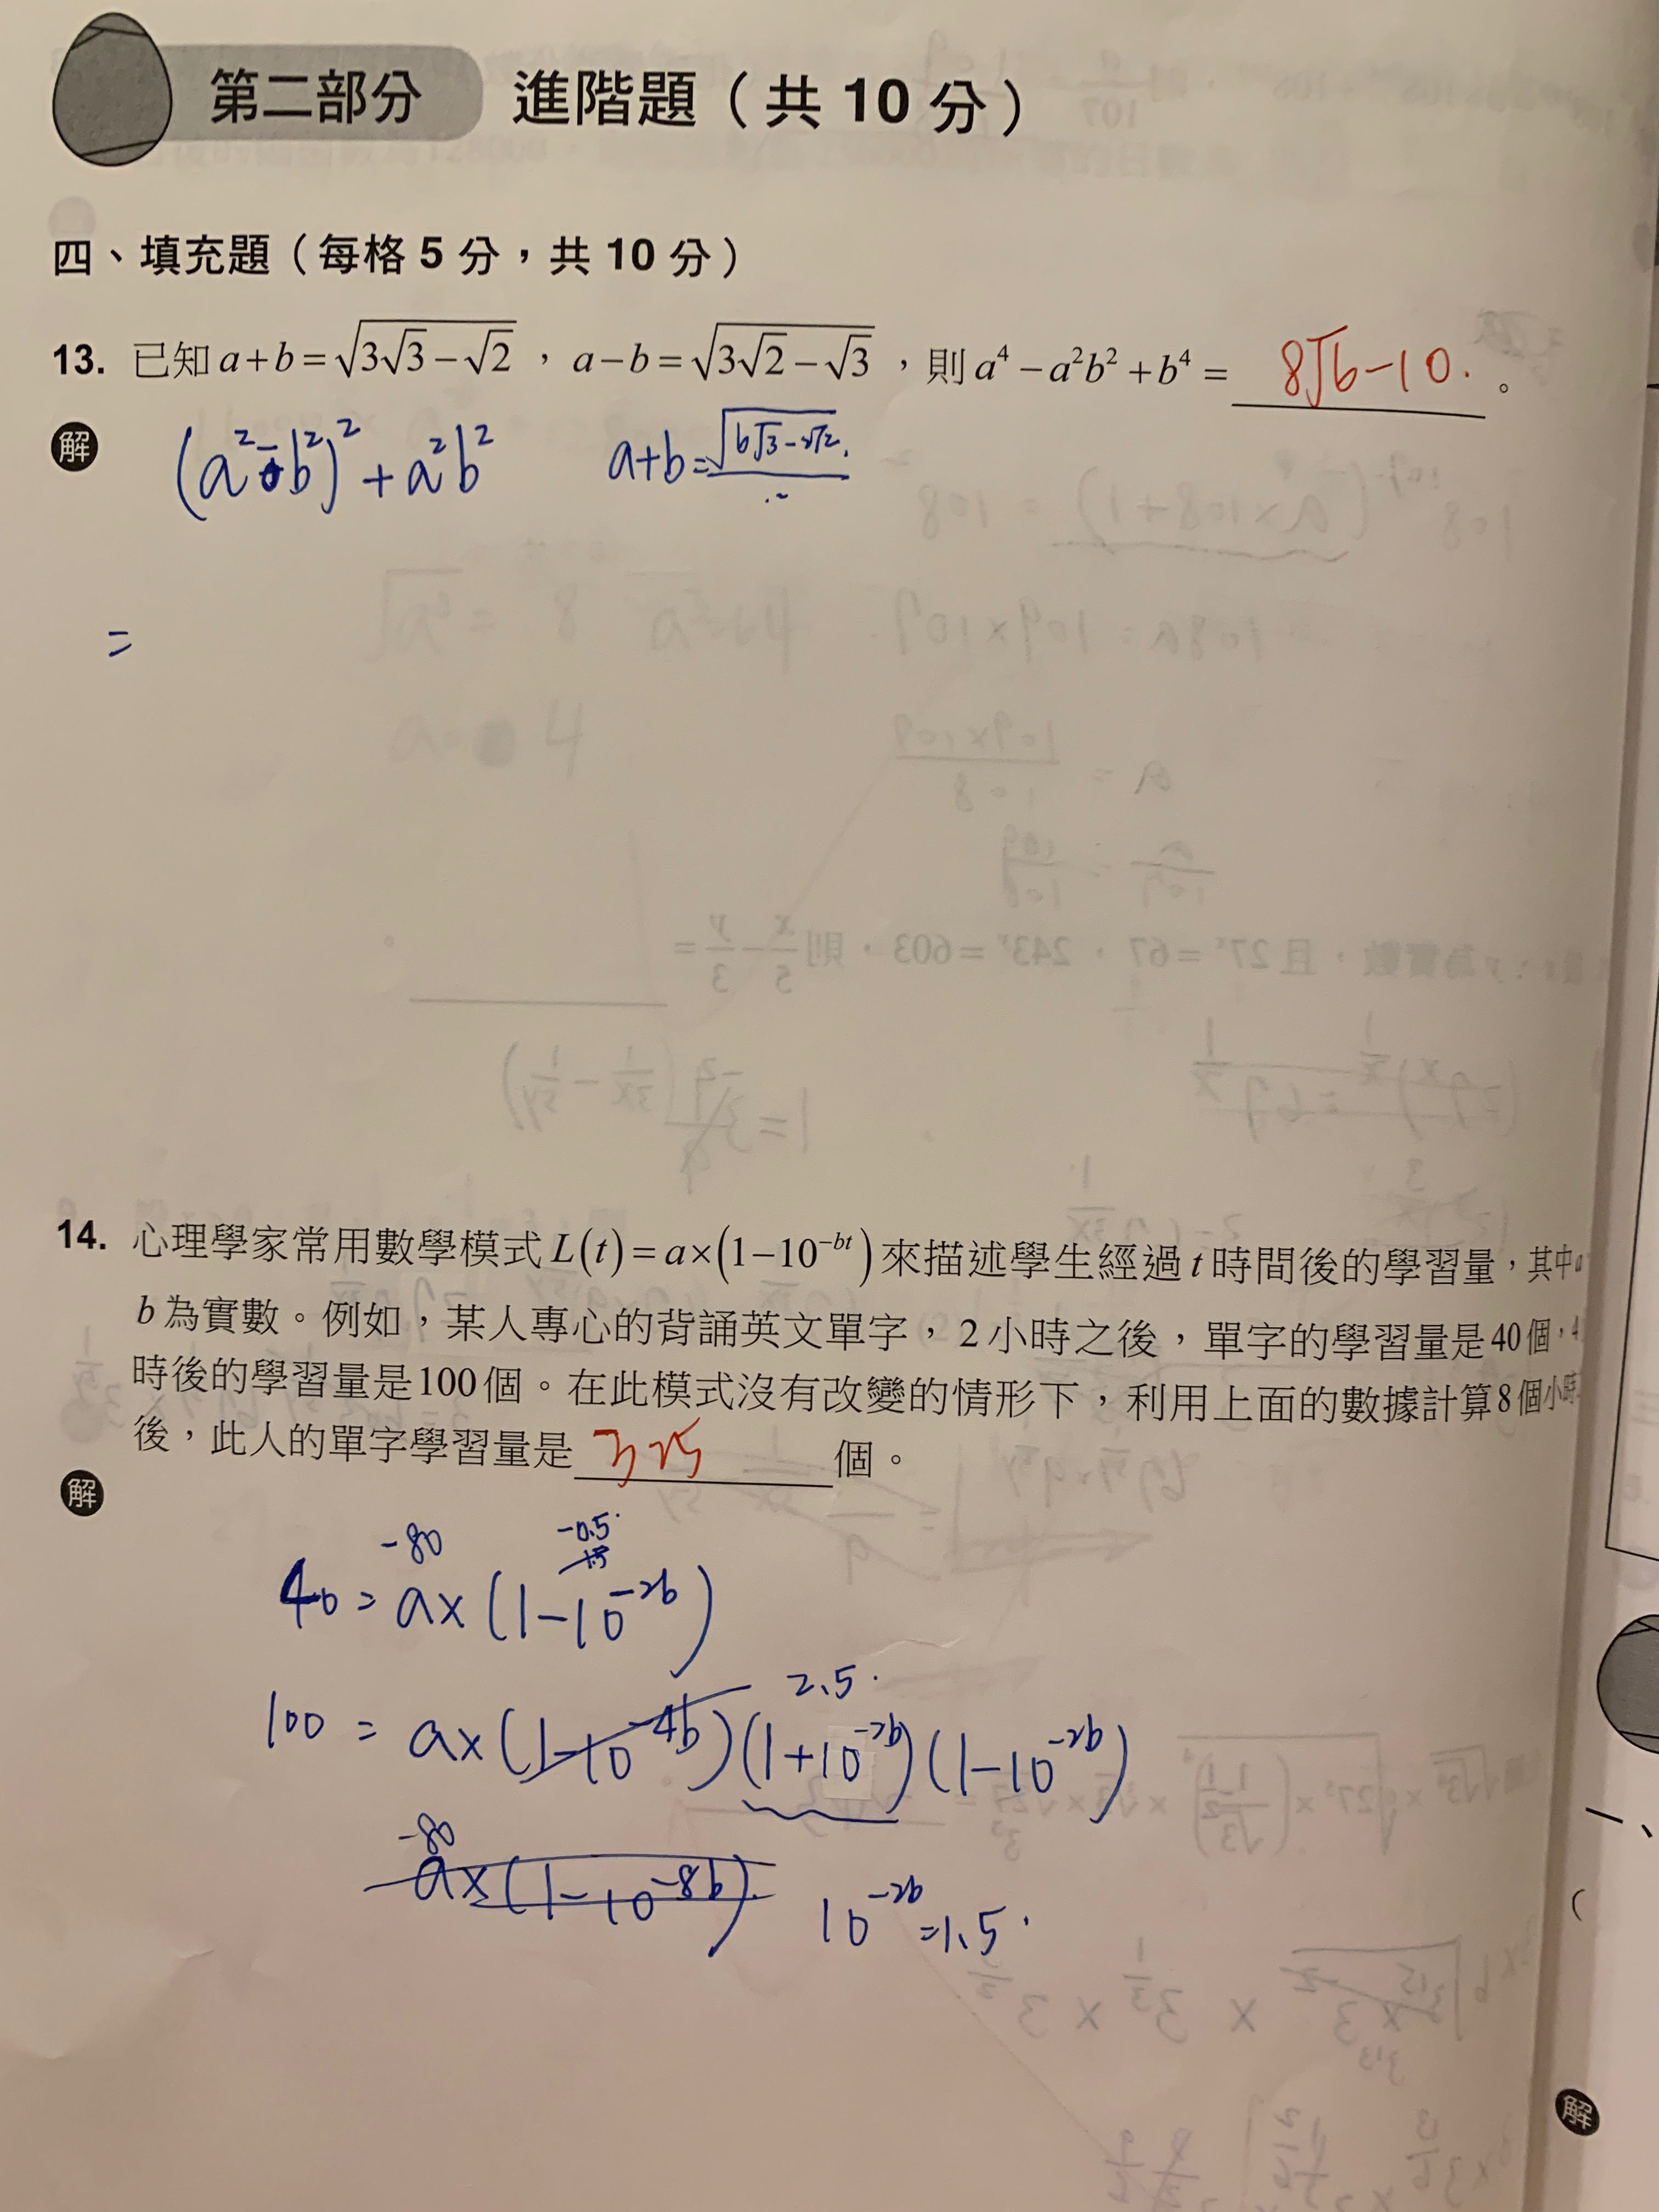 第二部分 進階題（共 10 分）
四、填充題（每格 5 分，共 10 分）
13. 已知 a+b=√(3√3−√2)，a−b=√(3√2−√3)，則 a⁴−a²b²+b⁴= 8√6−10. 。
解 (a²-b²)²+a²b² a+b=
=
14. 心理學家常用數學模式 L(t)=a×(1−10^(−bt)) 來描述學生經過 t 時間後的學習量，其中
b 為實數。例如，某人專心的背誦英文單字，2 小時之後，單字的學習量是 40 個，4
時後的學習量是 100 個。在此模式沒有改變的情形下，利用上面的數據計算 8 個小時
後，此人的單字學習量是 325 個。
解
-80 -0.5
40 = a×(1−10^(−2b))
2.5
100 = a×(1−10^(−4b))(1+10^(−2b))(1−10^(−2b))
-80
a×(1−10^(−8b)) 10^(−2b)=1.5
一、
(
解